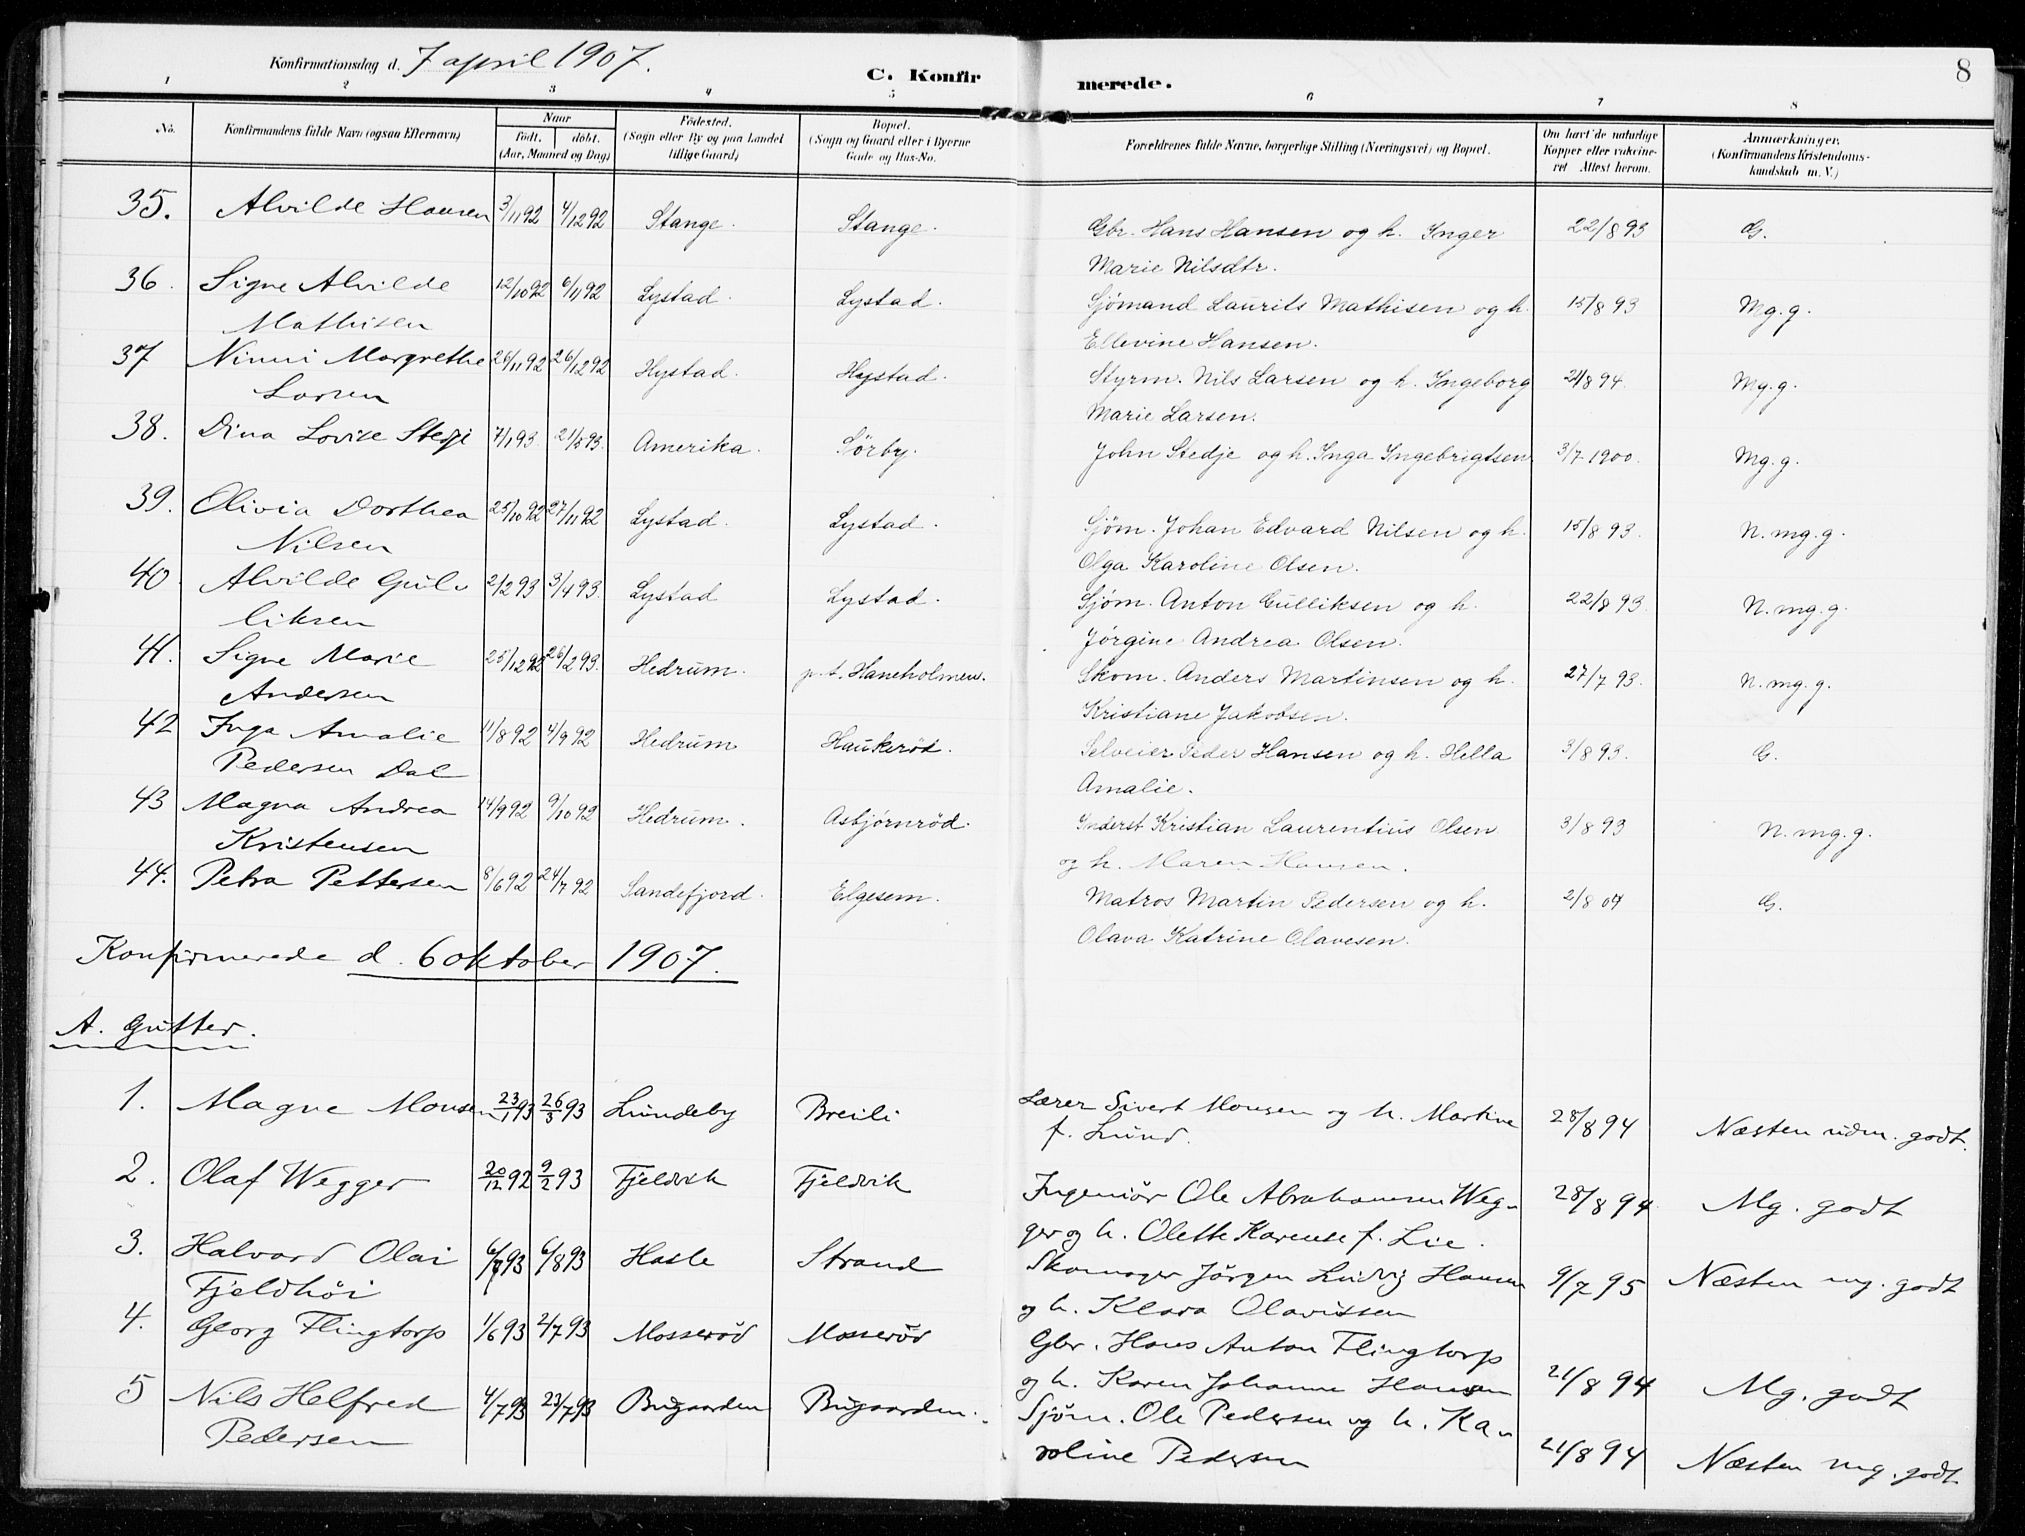 Konfirmationsdag d. 7 april 1907.
C. Konfirmerede.
8
1 2 3 4 5 6 7 8
No. | Konfirmandens fulde Navn (ogsaa Efternavn) | Naar født, døbt. (Aar, Maaned og Dag) | Fødested. (Sogn eller By og paa Landet tillige Gaard) | Bopæl. (Sogn og Gaard eller i Byerne Gade og Hus-No. | Forældrenes fulde Navne, borgerlige Stilling (Næringsvei) og Bopæl. | Om havt de naturlige Kopper eller vakcineret Attest herom. | Anmærkninger. (Konfirmandens Kristendomskundskab m. V.)
35. Alvilde Hansen 3/11 92 4/12 92 Stange. Stange. Gbr. Hans Hansen og h. Inger 22/8 93 G.
Marie Nilsdtr.
36. Signe Alvilde 12/10 92 6/11 92 Lystad. Lystad. Sjømand Laurits Mathisen og h. 15/8 93 Mg. g.
Mathisen Ellevine Hansen.
37 Ninni Margrethe 26/11 92 26/12 92 Hystad. Hystad. Styrm. Nils Larsen og h. Ingeborg 21/8 94. Mg. g.
Larsen Marie Larsen.
38. Dina Lovise Stedje 7/1 93. 21/5 93. Amerika. Sörby. John Stedje og h. Inga Ingebrigtsen 3/7 1900. Mg. g.
39. Olivia Dorthea 25/10 92 27/11 92 Lystad. Lystad. Sjøm. Johan Edvard Nilsen og h. 15/8 93. N. mg. g.
Nilsen Olga Karoline Olsen.
40. Alvilde Gul- 2/2 93 3/4 93. Lystad Lystad. Sjøm. Anton Gulliksen og h. 22/8 93. N. mg. g.
liksen Jørgine Andrea Olsen.
41. Signe Marie 25/12 92 26/2 93. Hedrum. p. t. Haneholmen. Skom. Anders Martinsen og h. 27/7 93. N. mg. g.
Andersen Kristiane Jakobsen.
42 Inga Amalie 11/8 92 4/9 92 Hedrum Haukeröd. Selveier Peder Hansen og h. Hella 3/8 93. G.
Pedersen Dal Amalie.
43 Magna Andrea 14/9 92 9/10 92 Hedrum. Asbjørnröd. Inderst Kristian Laurentius Olsen 3/8 93 N. mg. g.
Kristensen og h. Maren Hansen.
44. Petra Pettersen 8/6 92 24/7 92 Sandefjord. Elgesem. Matros Martin Pedersen og h. 2/8 04 G.
Olava Katrine Olavesen.
Konfirmerede d. 6 oktober 1907.
A. Gutter.
1. Magne Monsen 23/1 93 26/3 93 Lundeby Breili Lærer Sivert Monsen og h. Martine 28/8 94 Næsten udm. godt.
f. Lund.
2. Olaf Wegger 20/12 92 9/2 93 Fjeldvik Fjeldvik Ingeniör Ole Abrahamsen Weg- 28/8 94 Mg. godt
ger og h. Olette Karense f. Lie.
3. Halvard Olai 6/7 93 6/8 93 Hasle Strand Skomager Jörgen Ludvig Hansen 9/7 95 Næsten mg. godt
Fjeldhöi og h. Klara Olavissen
4. Georg Flingtorp 1/6 93 2/7 93 Mosseröd Mosseröd Gbr. Hans Anton Flingtorp
og h. Karen Johanne Hansen 21/8 94 Mg. godt
5 Nils Helfred 4/7 93 23/7 93 Bugaarden Bugaarden. Sjöm. Ole Pedersen og h. Ka-
Pedersen roline Pedersen 21/8 94 Næsten mg. godt